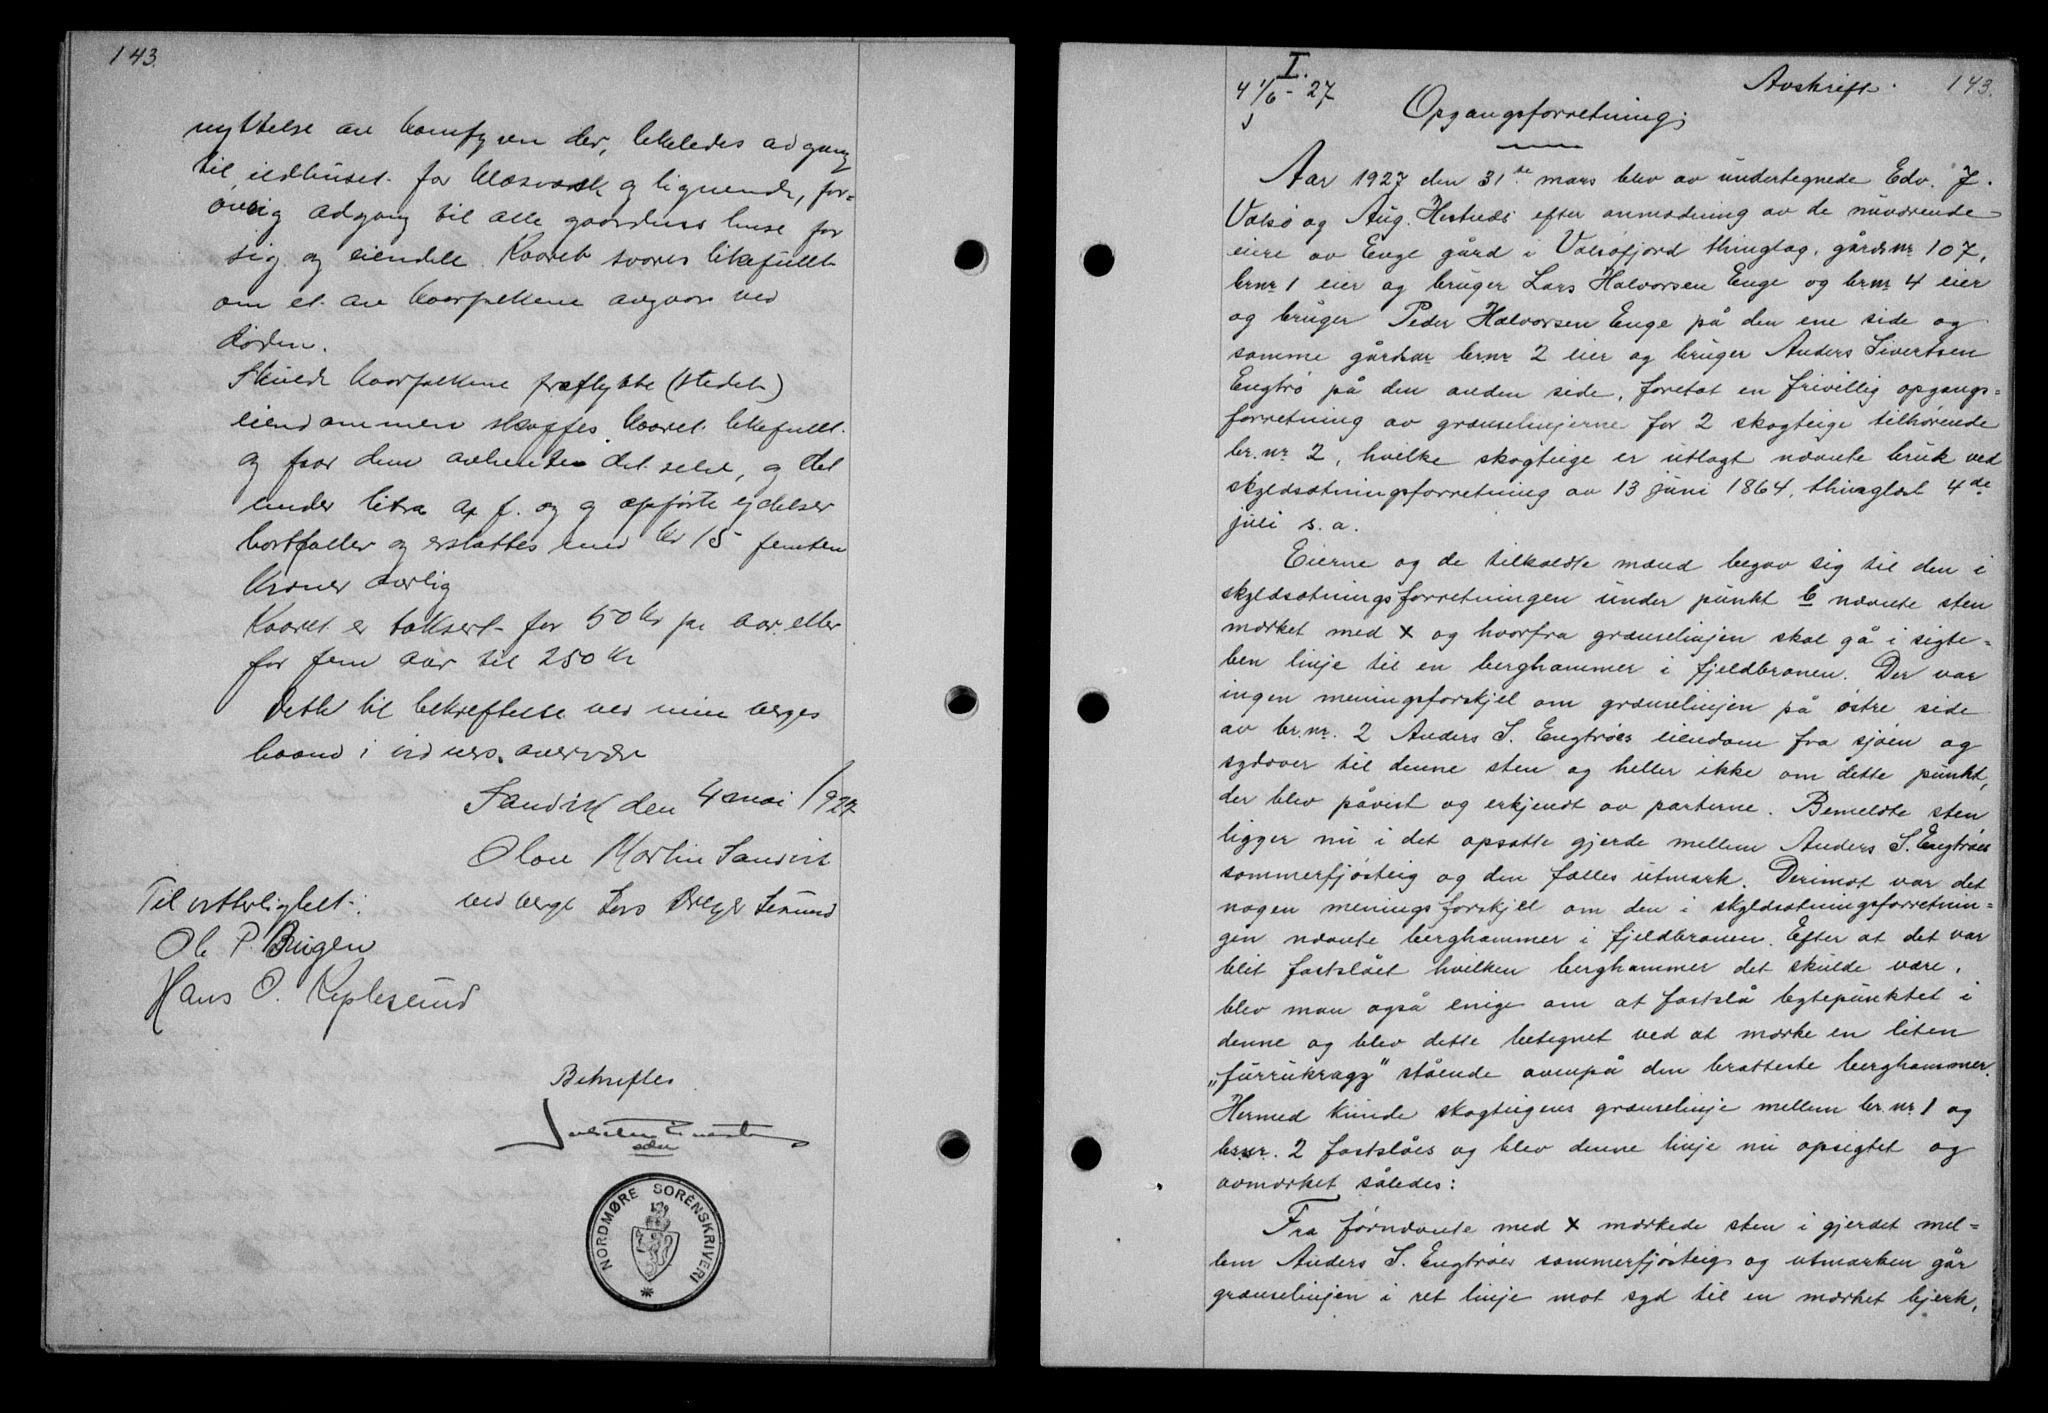 143.
nyttelse av komfyren der, likeledes adgang
til ildhuset for klæsvask og lignende, for-
øvrig adgang til alle gaardens huse for
sig og eiendele. Kaaret svares likefullt
om et av kaarfolkene avgaar ved
døden.
Skulde kaarfolkene fraflytte (stedet)
eiendommen skaffes kaaret likefullt
og faar dem avhente det selv, og det
under litra f. og g opførte ydelser
bortfaller og erstattes med kr 15 femten
kroner aarlig
Kaaret er taksert for 50 kr pr aar eller
for fem aar til 250 kr
Dette til bekreftelse ved min verges
haand i vidners overvær
Sandvik den 4 mai 1927
Olav Martin Sandvik
ved verge Lars
Til vitterlighet:
Ole P. Bugen
Hans O.
Bekreftes
NORDMØRE SORENSKRIVERI
I.
4 1/6 - 27
Avskrift.
143.
Opgangsforretning;
Aar 1927 den 31te mars blev av undertegnede Edv. J.
Valsø og Aug. Hestnæs efter anmodning av de nuværende
eiere av Enge gård i Valsøfjord thinglag, gårdsnr 107,
brnr 1 eier og bruger Lars Halvorsen Enge og brnr 4 eier
og bruger Peder Halvorsen Enge på den ene side og
samme gårdsnr brnr 2 eier og bruger Anders Sivertsen
Engtrø på den anden side, foretat en frivillig opgangs-
forretning av grænselinjerne for 2 skogteige tilhørende
br.nr 2, hvilke skogteige er utlagt nævnte bruk ved
skyldsætningsforretning av 13 juni 1864, thinglæst 4de
juli s.a.
Eierne og de tilkaldte mænd begav sig til den i
skyldsætningsforretningen under punkt nævnte sten
mærket med x og hvorfra grænselinjen skal gå i sigte-
ben linje til en berghammer i fjeldbranen. Der var
ingen meningsforskjel om grænselinjen på østre side
av br.nr. 2 Anders S. Engtrøes eiendom fra sjøen og
sydover til denne sten og heller ikke om dette punkt,
der blev påvist og erkjendt av parterne. Bemeldte sten
ligger nu i det opsatte gjerde mellem Anders S. Engtrøes
sommerfjøsteig og den fælles utmark. Derimot var det
nogen meningsforskjel om den i skyldsætningsforretnin-
gen nævnte berghammer i fjeldbranen. Efter at det var
blit fastslået hvilken berghammer det skulde være,
blev man også enige om at fastslå bytepunktet i
denne og blev dette betegnet ved at mærke en liten
„furrukragg" stående ovenpå den bratteste berghammer.
Hermed kunde skogteigens grænselinje mellem br.nr 1 og
brnr. 2 fastslåes og blev denne linje nu opsigtet og
avmærket således:
Fra førnævnte med x mærkede sten i gjerdet mel-
lem Anders S. Engtrøes sommerfjøsteig og utmarken går
grænselinjen i ret linje mot syd til en mærket bjerk,